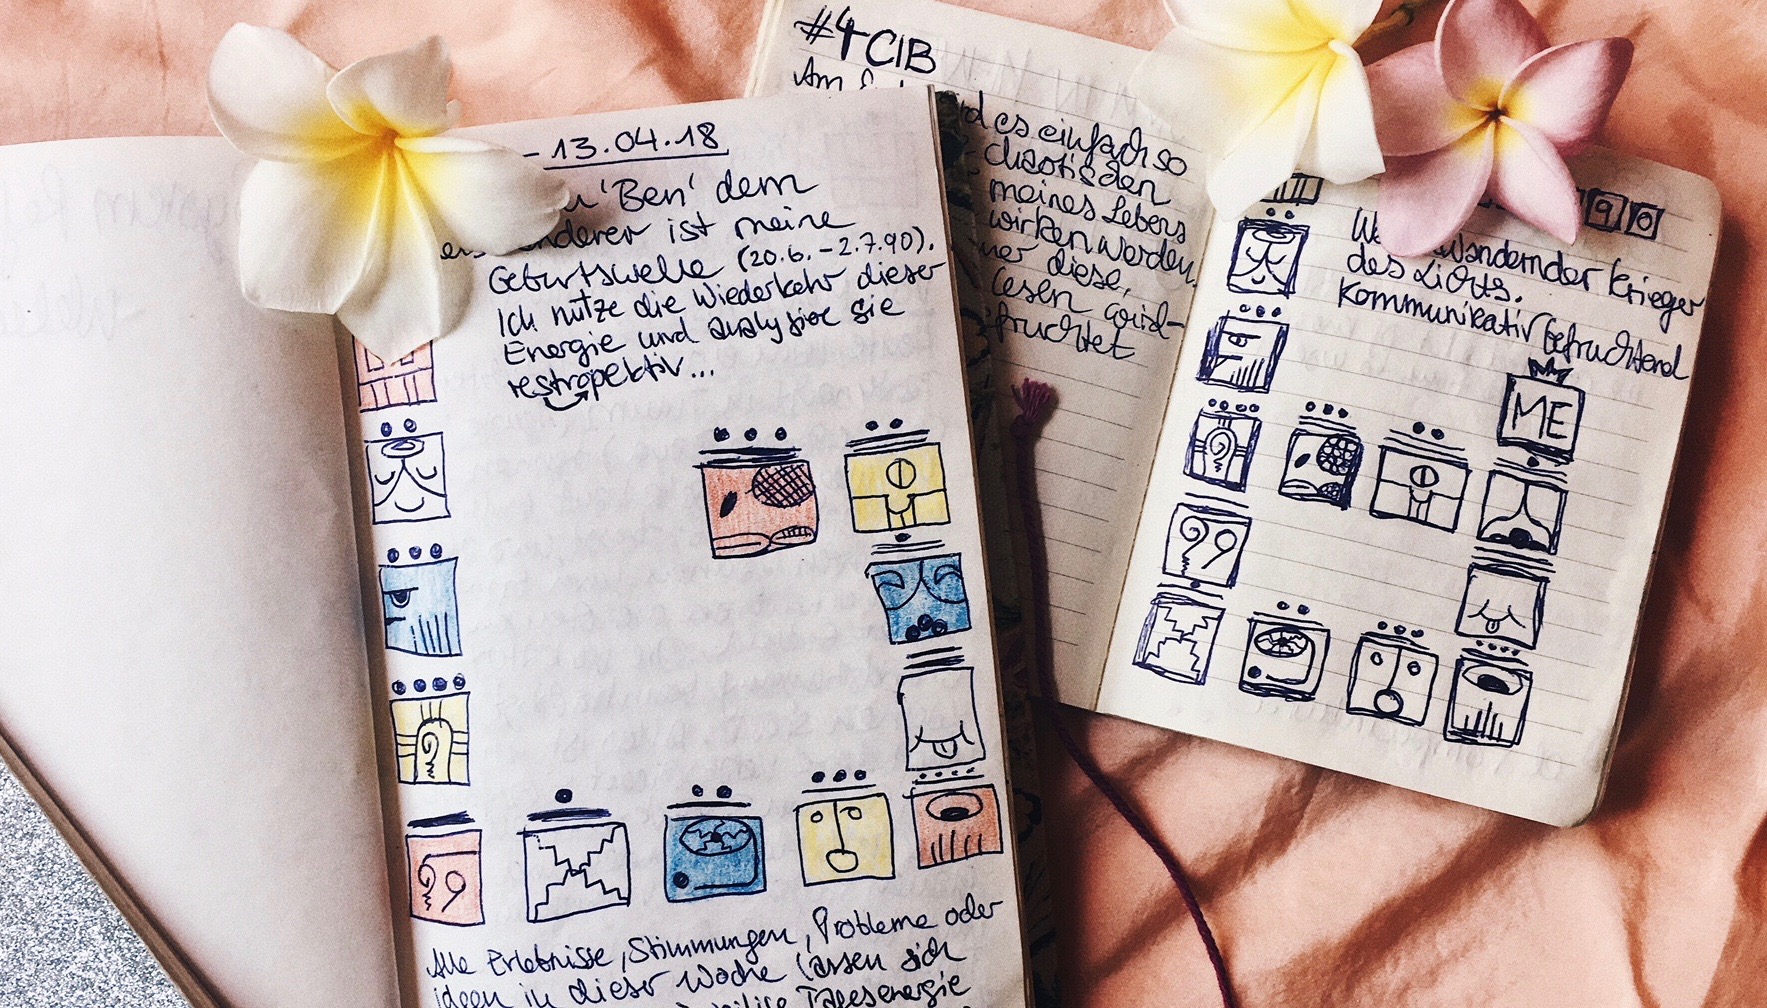 - 13.04.18
'Ben' dem
ist meine
Geburtswelle (20.6. - 2.7.90).
Ich nutze die Wiederkehr dieser
Energie und analysiere sie
restropektiv...
Alle Erlebnisse, Stimmungen, Probleme oder
Ideen in dieser Woche lassen sich
Tagesenergie
#4 CIB
Am
es einfach so
chaotischen
meines Lebens
wirken werden.
diese,
lesen wird
fruchtet
90
wandernder Krieger
des Lichts.
Kommunikativ befruchtend
ME